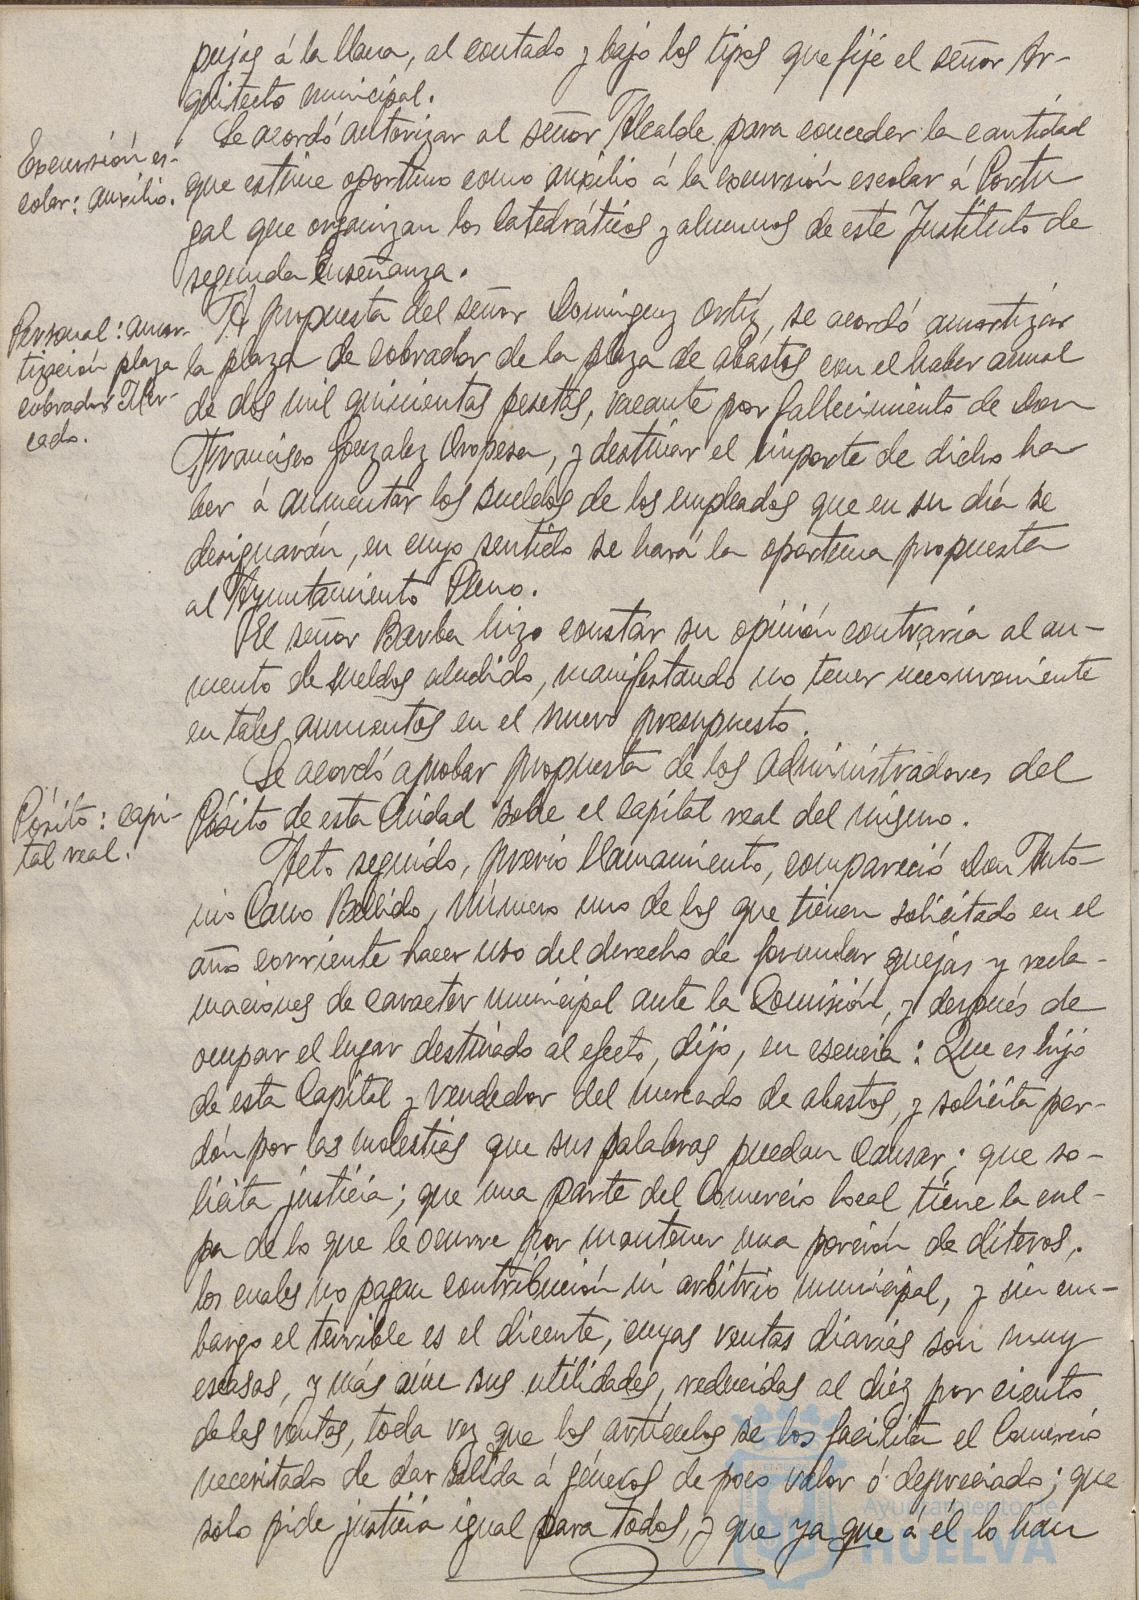 pujas á la llana, al contado y bajo los tipos que fije el señor Ar-
quitecto municipal.
Excursión es-
colar: auxilio.
Se acordó autorizar al señor Alcalde para conceder la cantidad
que estime oportuno como auxilio á la excursión escolar á Portu
gal que organizan los catedráticos y alumnos de este Instituto de
segunda Enseñanza.
Personal: amor-
tización plaza
cobrador Mer-
cado.
A propuesta del señor Dominguez Ortíz, se acordó amortizar
la plaza de cobrador de la plaza de abastos con el haber anual
de dos mil quinientas pesetas, vacante por fallecimiento de Don
Francisco Gonzalez Oropesa, y destinar el importe de dicho ha
ber á aumentar los sueldos de los empleados que en su día se
designarán, en cuyo sentido se hará la oportuna propuesta
al Ayuntamiento Pleno.
El señor Barba hizo constar su opinión contraria al au-
mento de sueldos aludido, manifestando no tener inconveniente
en tales aumentos en el nuevo presupuesto.
Pósito: capi-
tal real.
Se acordó aprobar propuesta de los Administradores del
Pósito de esta Ciudad sobre el capital real del mismo.
Acto seguido, previo llamamiento, compareció Don Anto-
nio Cano Bellido, número uno de los que tienen solicitado en el
año corriente hacer uso del derecho de formular quejas y recla-
maciones de caracter municipal ante la Comisión, y después de
ocupar el lugar destinado al efecto, dijo, en esencia: Que es hijo
de esta Capital y vendedor del mercado de abastos, y solicita per-
dón por las molestias que sus palabras puedan causar; que so-
licita justicia; que una parte del Comercio local tiene la cul-
pa de lo que le ocurre por mantener una porción de diteros,
los cuales no pagan contribución ni arbitrio municipal, y sin em-
bargo el terrible es el dicente, cuyas ventas diarias son muy
escasas, y más aún sus utilidades, reducidas al diez por ciento
de las ventas, toda vez que los artículos se los facilita el Comercio
necesitado de dar salida á géneros de poco valor ó depreciado; que
solo pide justicia igual para todos, y que ya que á él lo han
Ayuntamiento de
HUELVA